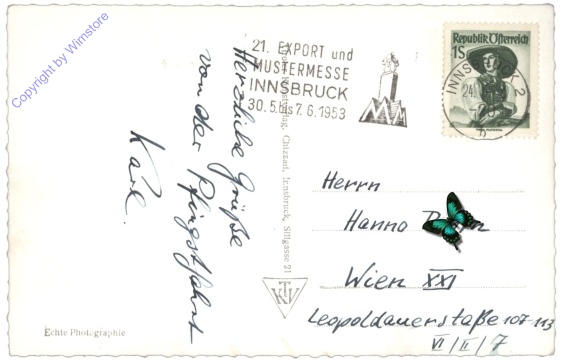 Copyright by Wimstore
21. EXPORT und
MUSTERMESSE
INNSBRUCK
30.5.bis 7.6.1953
Republik Österreich
1S
INNSBRUCK 2
24
b
Herzliche Grüße
von der Pfingstfahrt
Karl
Chizzali, Innsbruck, Sillgasse 21
Herrn
Hanno
Wien XXI
Leopoldauerstaße 107-113
VI/II/7
Echte Photographie